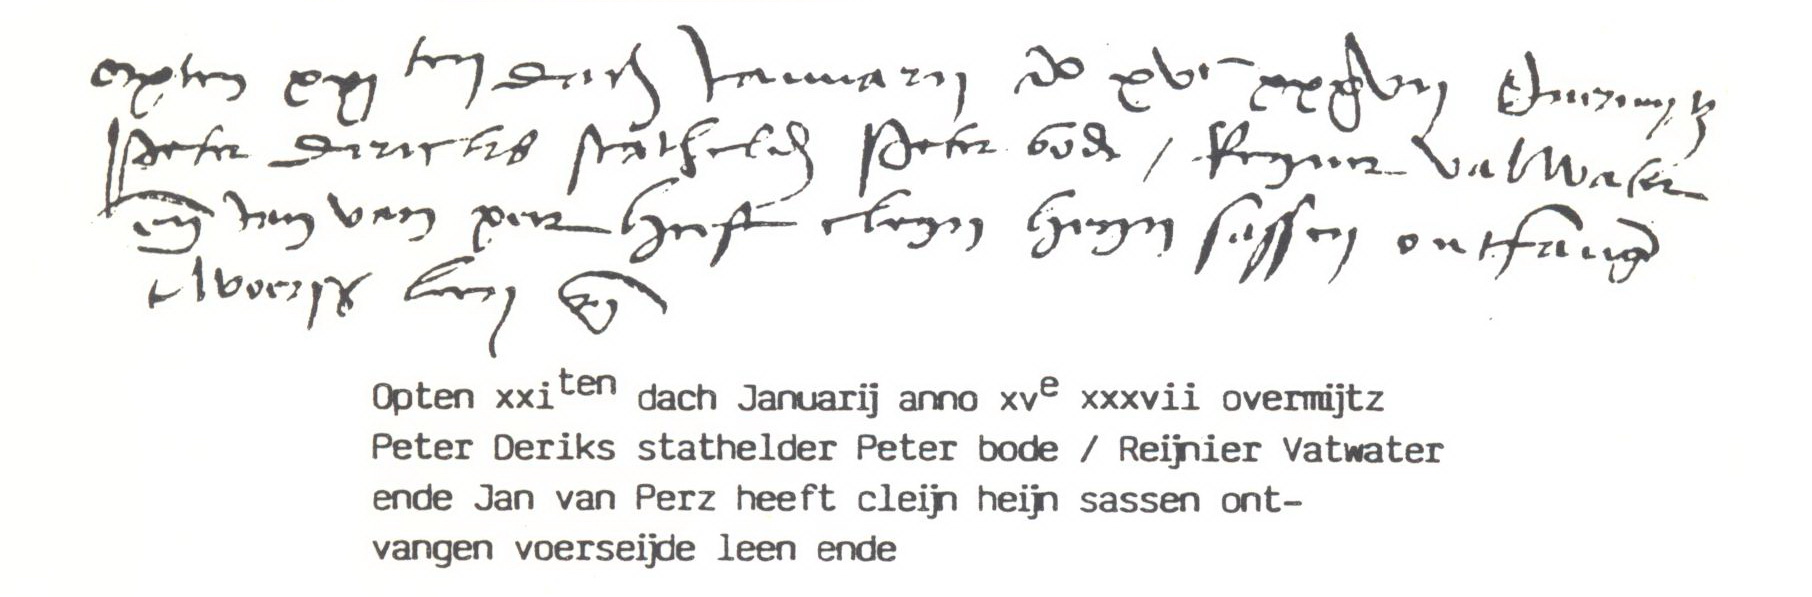 opten xxi ten dach Januarij ao xvc xxxvij overmijtz
Peter Dericks stathelder Peter bode / Reijner vatwater
ende Jan van perz heeft cleijn heijn sassen ontfangen
tvoersz leen ende
Opten xxiten dach Januarij anno xve xxxvii overmijtz
Peter Deriks stathelder Peter bode / Reijnier Vatwater
ende Jan van Perz heeft cleijn heijn sassen ont-
vangen voerseijde leen ende